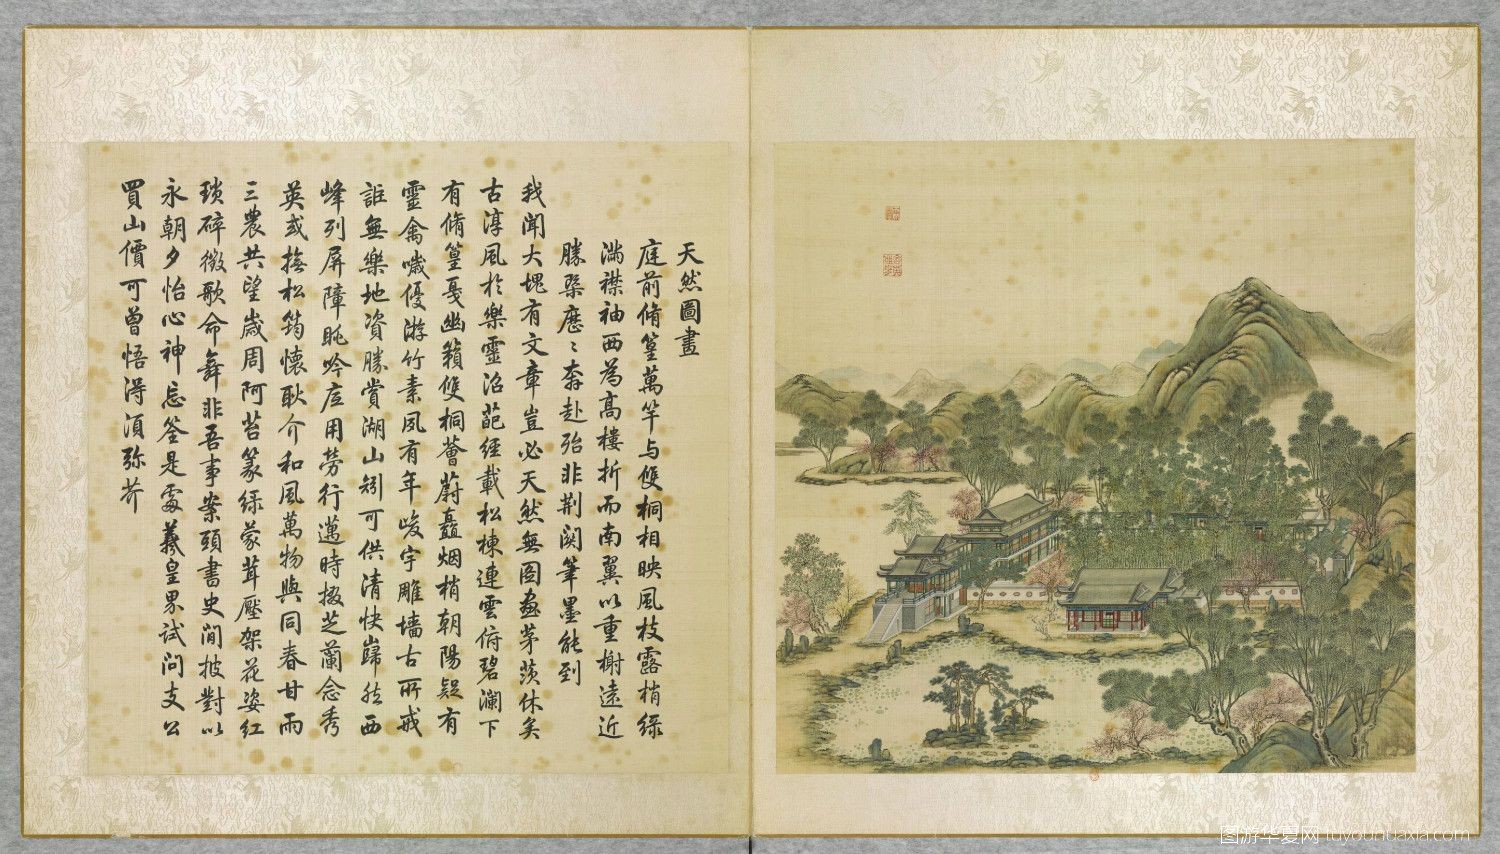 天然圖畫
庭前脩篁萬竿与雙桐相映風枝露梢綠
滿襟袖西為高樓折而南翼以重榭遠近
勝槩歷〻奔赴殆非荆関筆墨能到
我聞大塊有文章豈必天然無图畫茅茨休矣
古淳風於樂靈沼葩經載松棟連雲俯碧瀾下
有脩篁戞幽籟雙桐薈蔚矗烟梢朝陽疑有
靈禽噦優游竹素夙有年峻宇雕墻古所戒
詎無樂地資勝賞湖山矧可供清快歸然西
峰列屏障眺吟底用勞行邁時掇芝蘭念秀
英或撫松筠懷耿介和風萬物與同春甘雨
三農共望歲周阿苔篆綠蒙茸壓架花姿紅
瑣碎徴歌命舞非吾事案頭書史閒披對以
永朝夕怡心神忘筌是處羲皇界試问支公
買山價可曾悟淂須弥芥
图游华夏网 tuyouhuaxia.com